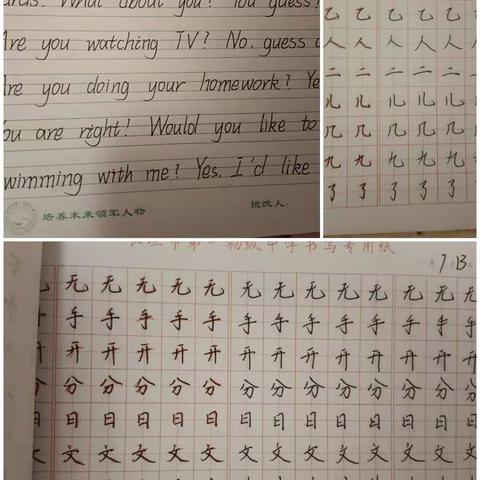 What about you? You guess!
Are you watching TV? No, guess
Are you doing your homework?
You are right! Would you like to
swimming with me? Yes, I'd like
培养未来领军人物 批改人:
乙 乙 乙 乙 乙
人 人 人 人 人
二 二 二 二 二
儿 儿 儿 儿 儿
几 几 几 几 几
九 九 九 九 九
了 了 了 了 了
初级中学书写专用纸
7 13
无 无 无 无 无 无 无 无 无 无 无 无
手 手 手 手 手 手 手 手 手 手 手
开 开 开 开 开 开 开 开 开 开 开
分 分 分 分 分 分 分 分 分 分 分 分
日 日 日 日 日 日 日 日 日 日 日 日
文 文 文 文 文 文 文 文 文 文 文 文